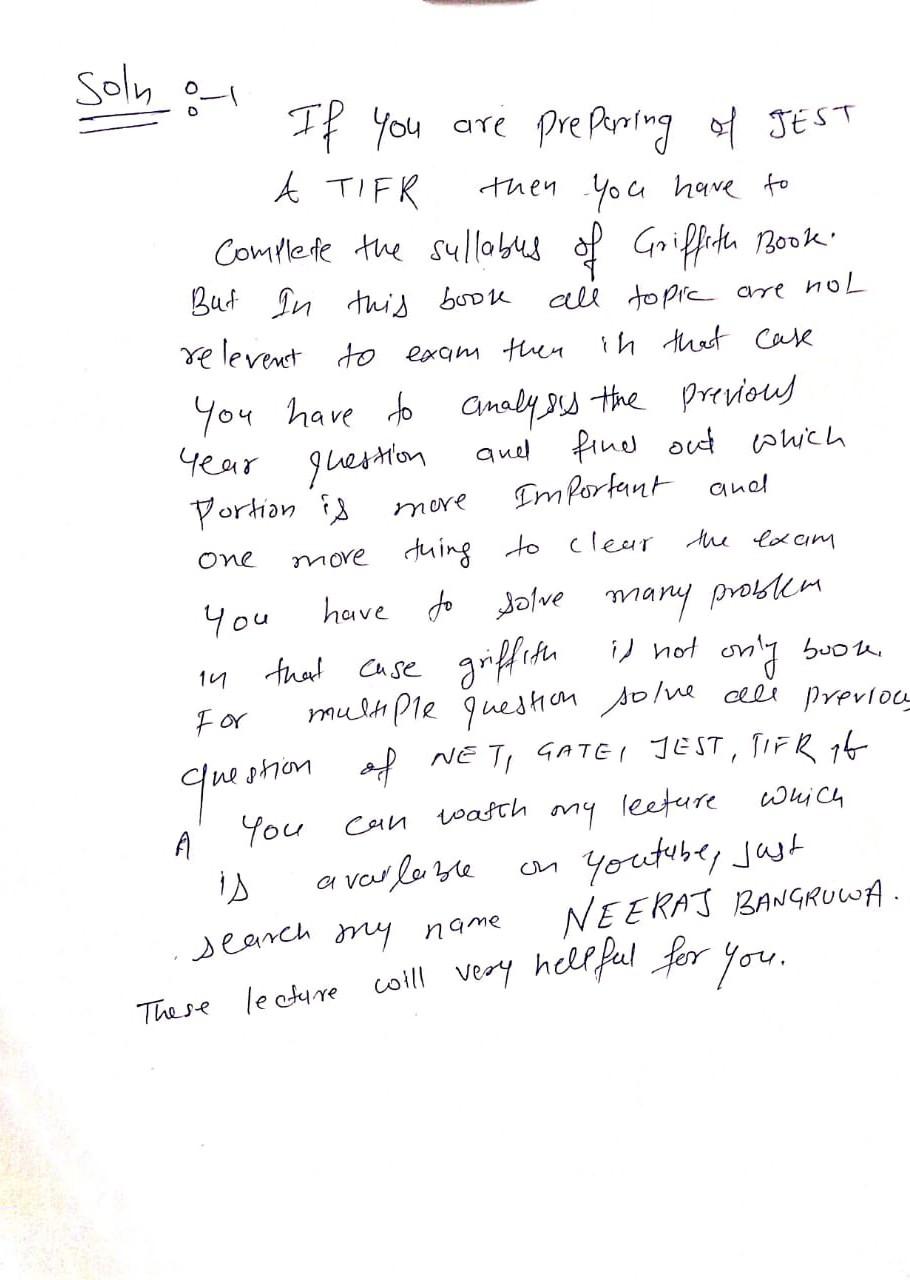 Soln :-
If you are preparing of JEST
& TIFR then you have to
Complete the syllabus of Griffith Book.
But In this book all topic are not
relevent to exam then in that case
You have to analysis the previous
Year question and find out which
Portion is more Important and
one more thing to clear the exam
You have to solve many problem
in that case griffith is not only book.
For multiple question solve all previou
question of NET, GATE, JEST, TIFR
& You can watch my lecture which
is available on youtube, just
search my name NEERAJ BANGRUWA.
These lecture will very helpful for you.